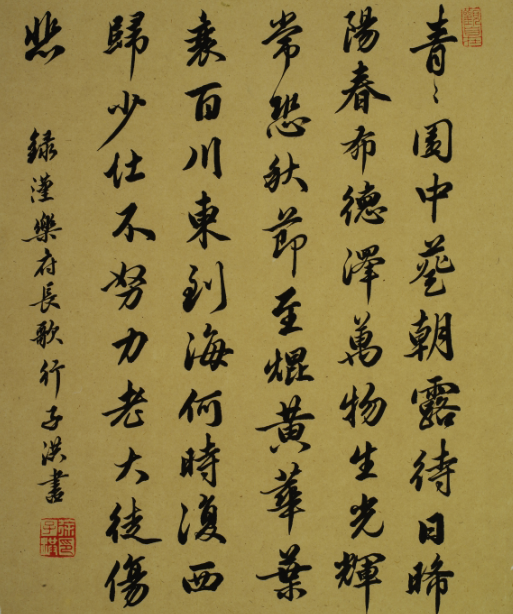 青〻園中葵朝露待日晞
陽春布德澤萬物生光輝
常恐秋節至焜黃華葉
衰百川東到海何時復西
歸少仕不努力老大徒傷
悲
録漢樂府長歌行子洪書